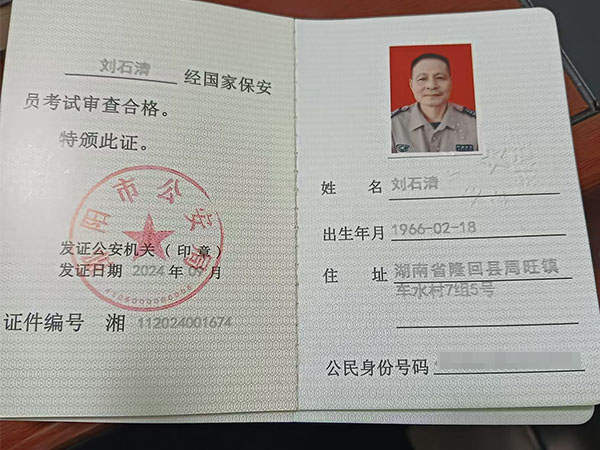 刘石清 经国家保安
员考试审查合格。
特颁此证。
阳市公安局
发证公安机关（印章）
发证日期 2024年07月
证件编号 湘 112024001674
姓 名 刘石清
出生年月 1966-02-18
住 址 湖南省隆回县周旺镇
车水村7组5号
公民身份号码